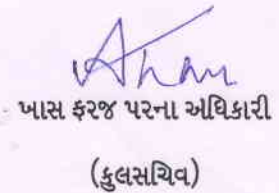 ખાસ ફરજ પરના અધિકારી
(કુલસચિવ)